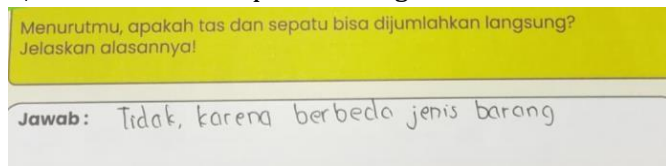 Menurutmu, apakah tas dan sepatu bisa dijumlahkan langsung?
Jelaskan alasannya!
Jawab : Tidak, karena berbeda jenis barang